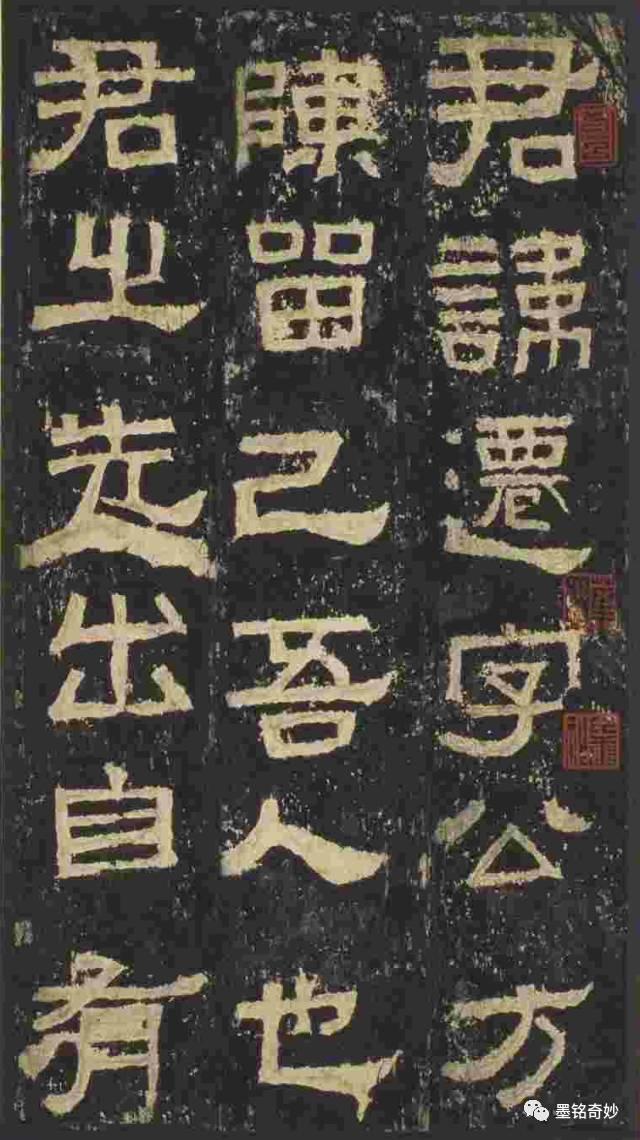 君諱遷字公方
陳留己吾人也
君之先出自有
墨铭奇妙